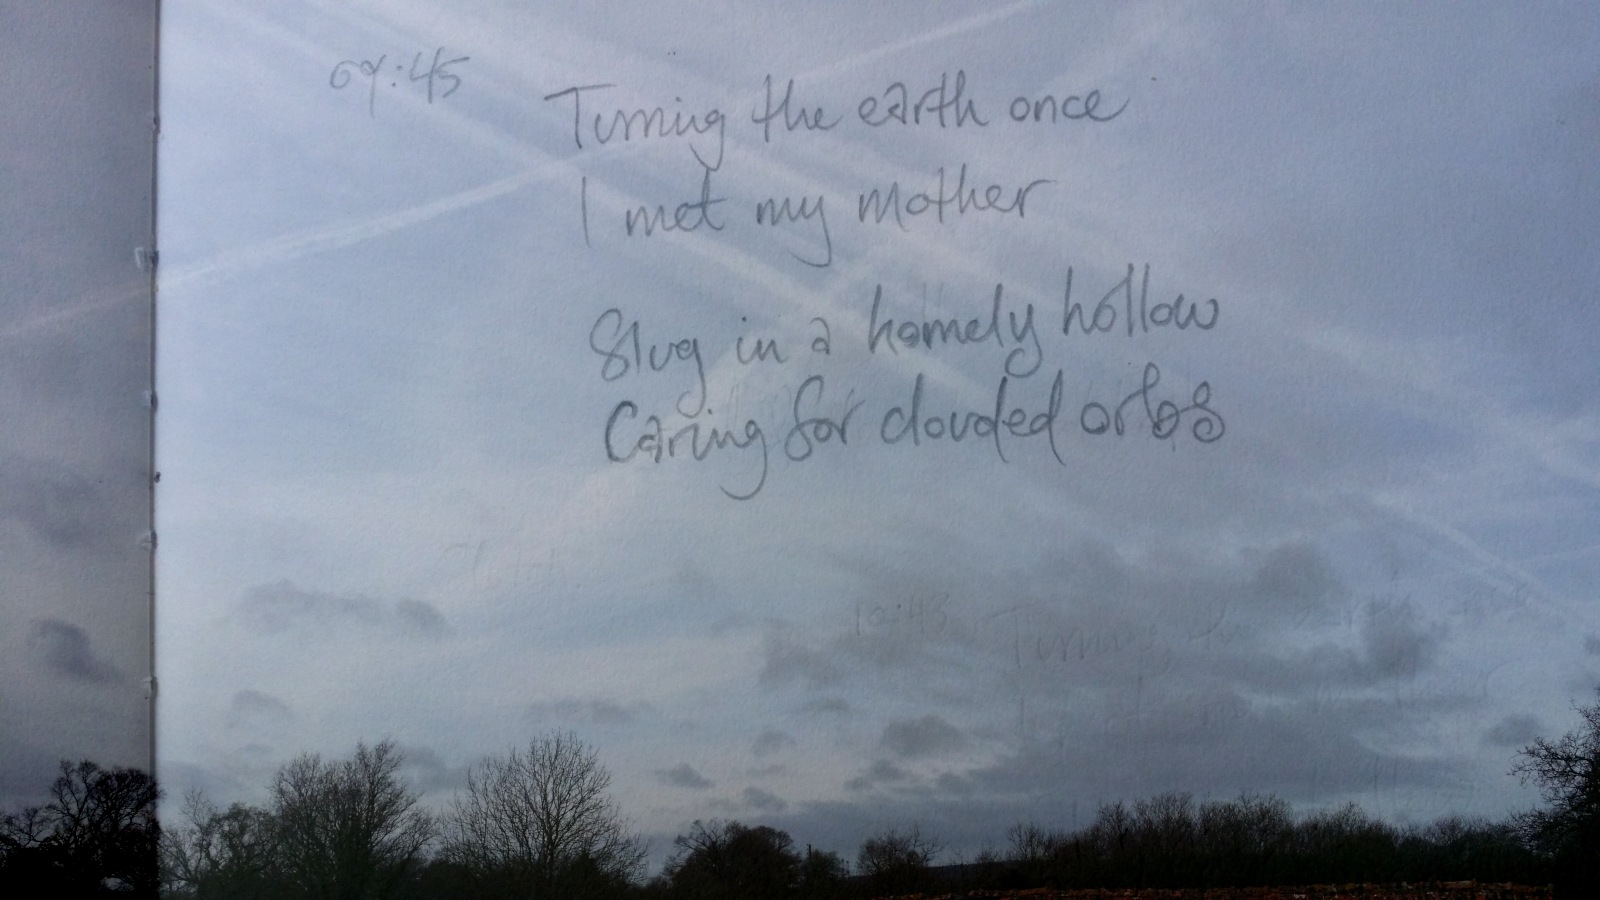 09:45
Turning the earth once
I met my mother
Slug in a homely hollow
Caring for clouded orbs
10:43
Turning the